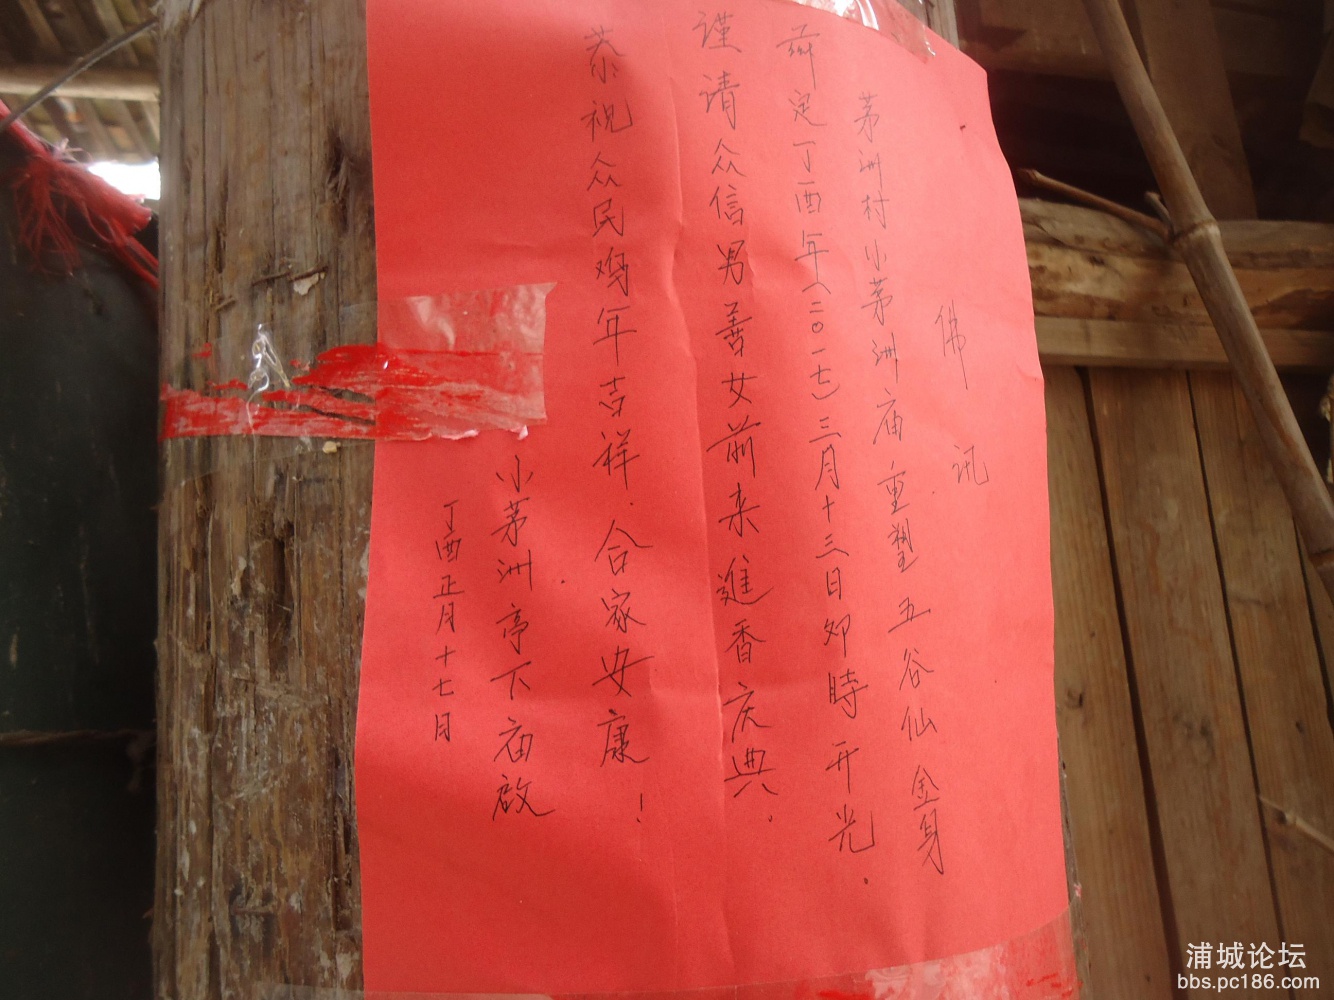 佛讯
茅洲村小茅洲庙重塑五谷仙金身
兹定丁酉年(二〇一七)三月十三日卯時开光.
谨请众信男善女前来進香庆典.
恭祝众民鸡年吉祥.合家安康!
小茅洲亭下庙啟
丁酉正月十七日
浦城论坛
bbs.pc186.com